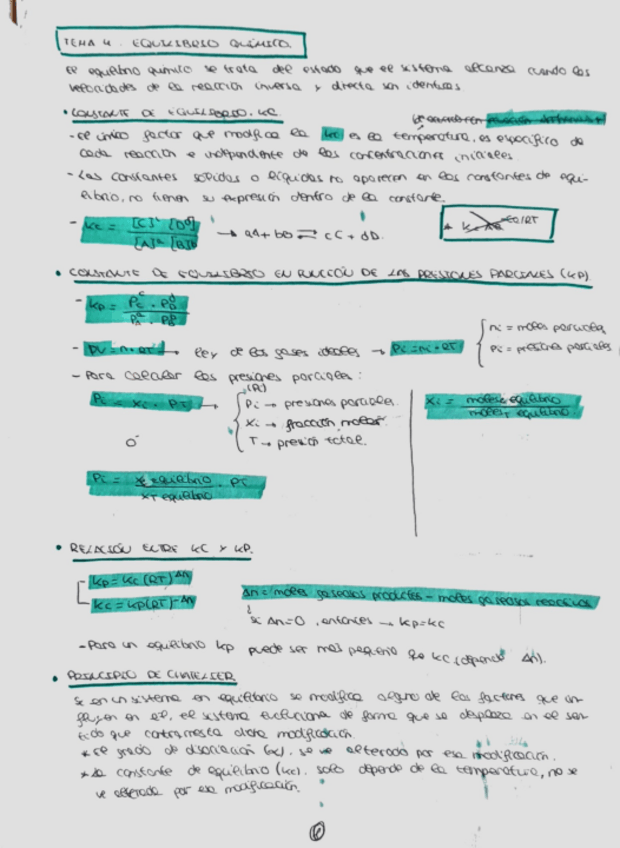 TEMA 4. EQUILIBRIO QUÍMICO.
El equilibrio químico se trata del estado que el sistema alcanza cuando las
velocidades de la reacción inversa y directa son idénticas.
• CONSTANTE DE EQUILIBRIO. Kc
- El único factor que modifica la Kc es la temperatura, es específico de
cada reacción e independiente de las concentraciones iniciales
- Las constantes solidas o líquidas no aparecen en las constantes de equi-
librio, no tienen su expresión dentro de la constante.
- Kc = [C]^c [D]^d / [A]^a [B]^b → aA + bB ⇌ cC + dD.
• CONSTANTE DE EQUILIBRIO EN FUNCIÓN DE LAS PRESIONES PARCIALES (KP)
- Kp = P_C^c · P_D^d / P_A^a · P_B^b
- PV = n · RT → ley de los gases ideales → Pi = ni · RT { ni = moles parciales
Pi = presiones parciales
- Para calcular las presiones parciales:
Pi = Xi · PT → { Pi → presiones parciales.
Xi → fracción molar.
T → presión total.
Xi = moles equilibrio / moles T equilibrio
o
Pi = x equilibrio / xT equilibrio · PT
• RELACIÓN ENTRE KC Y KP.
Kp = Kc (RT)^Δn
Kc = Kp (RT)^-Δn
Δn = moles gaseosos productos - moles gaseosos reactivos
↓ si Δn = 0, entonces → Kp = Kc
- Para un equilibrio Kp puede ser más pequeño que KC (depende Δn).
• PRINCIPIO DE CHATELIER.
Si en un sistema en equilibrio se modifica alguno de los factores que in-
fluyen en él, el sistema evoluciona de forma que se desplaza en el sen-
tido que contrarresta dicha modificación.
* El grado de disociación (α). se ve alterado por esa modificación.
* La constante de equilibrio (Kc). solo depende de la temperatura, no se
ve alterada por esa modificación.